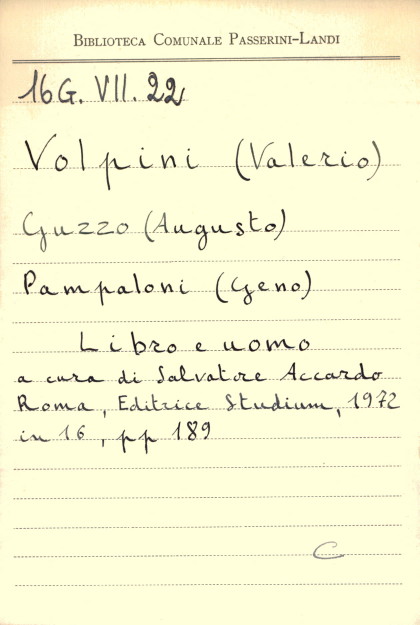 BIBLIOTECA COMUNALE PASSERINI-LANDI
16 G. VII. 22
Volpini (Valerio)
Guzzo (Augusto)
Pampaloni (Geno)
Libro e uomo
a cura di Salvatore Accardo
Roma, Editrice Studium, 1972
in 16, pp 189
C